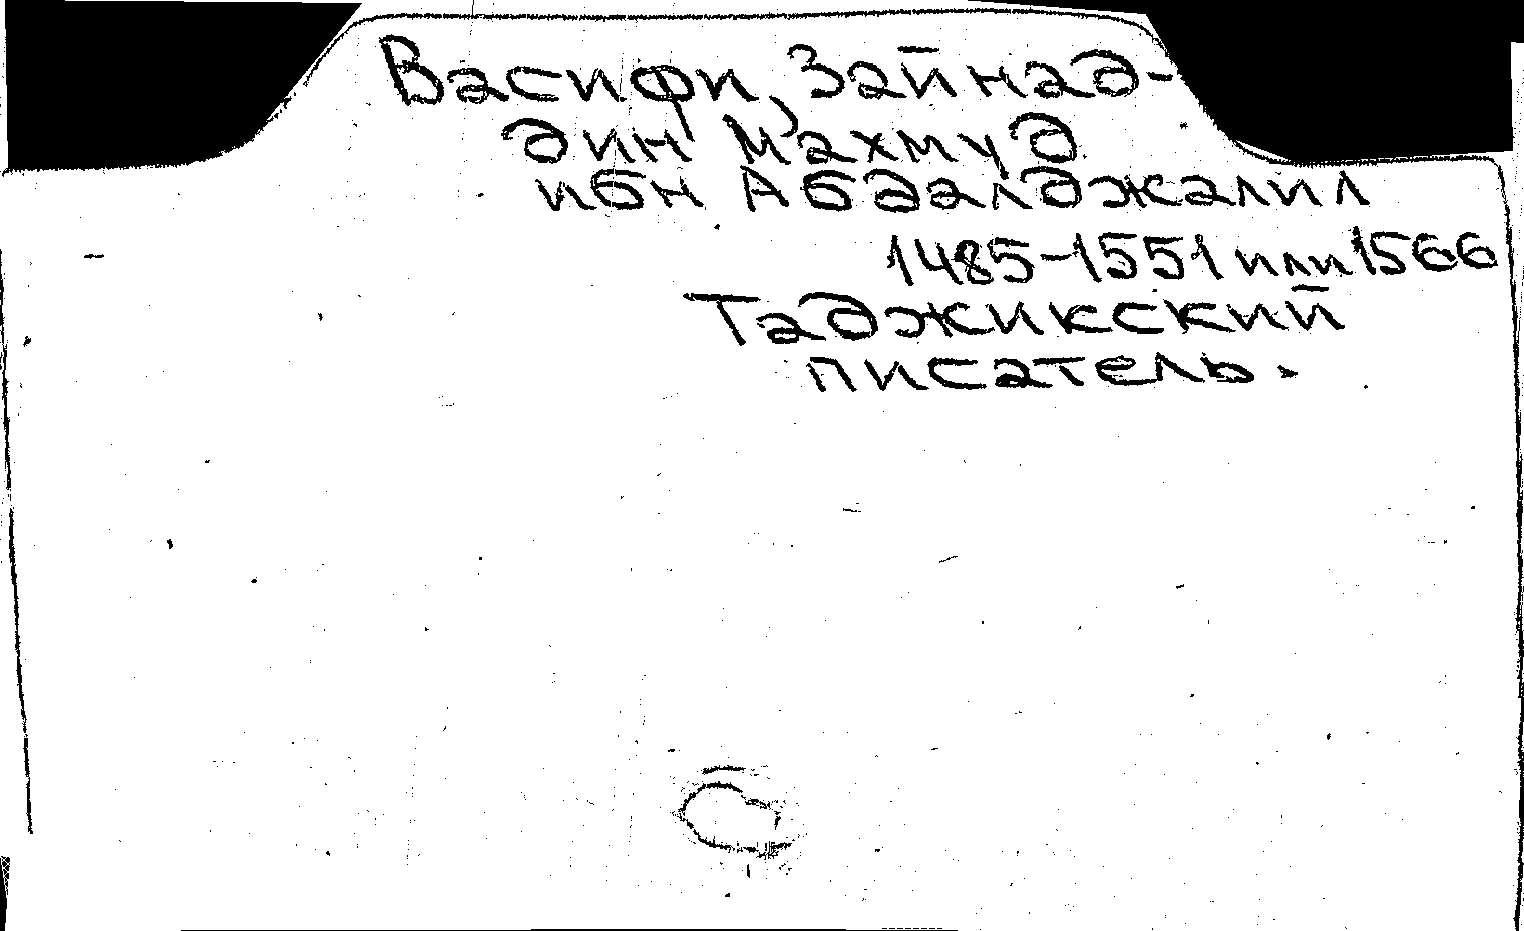 Васифи, Зайнад-
дин Махмуд
ибн Абдалджалил
1485-1551 или 1566
Таджикский
писатель.